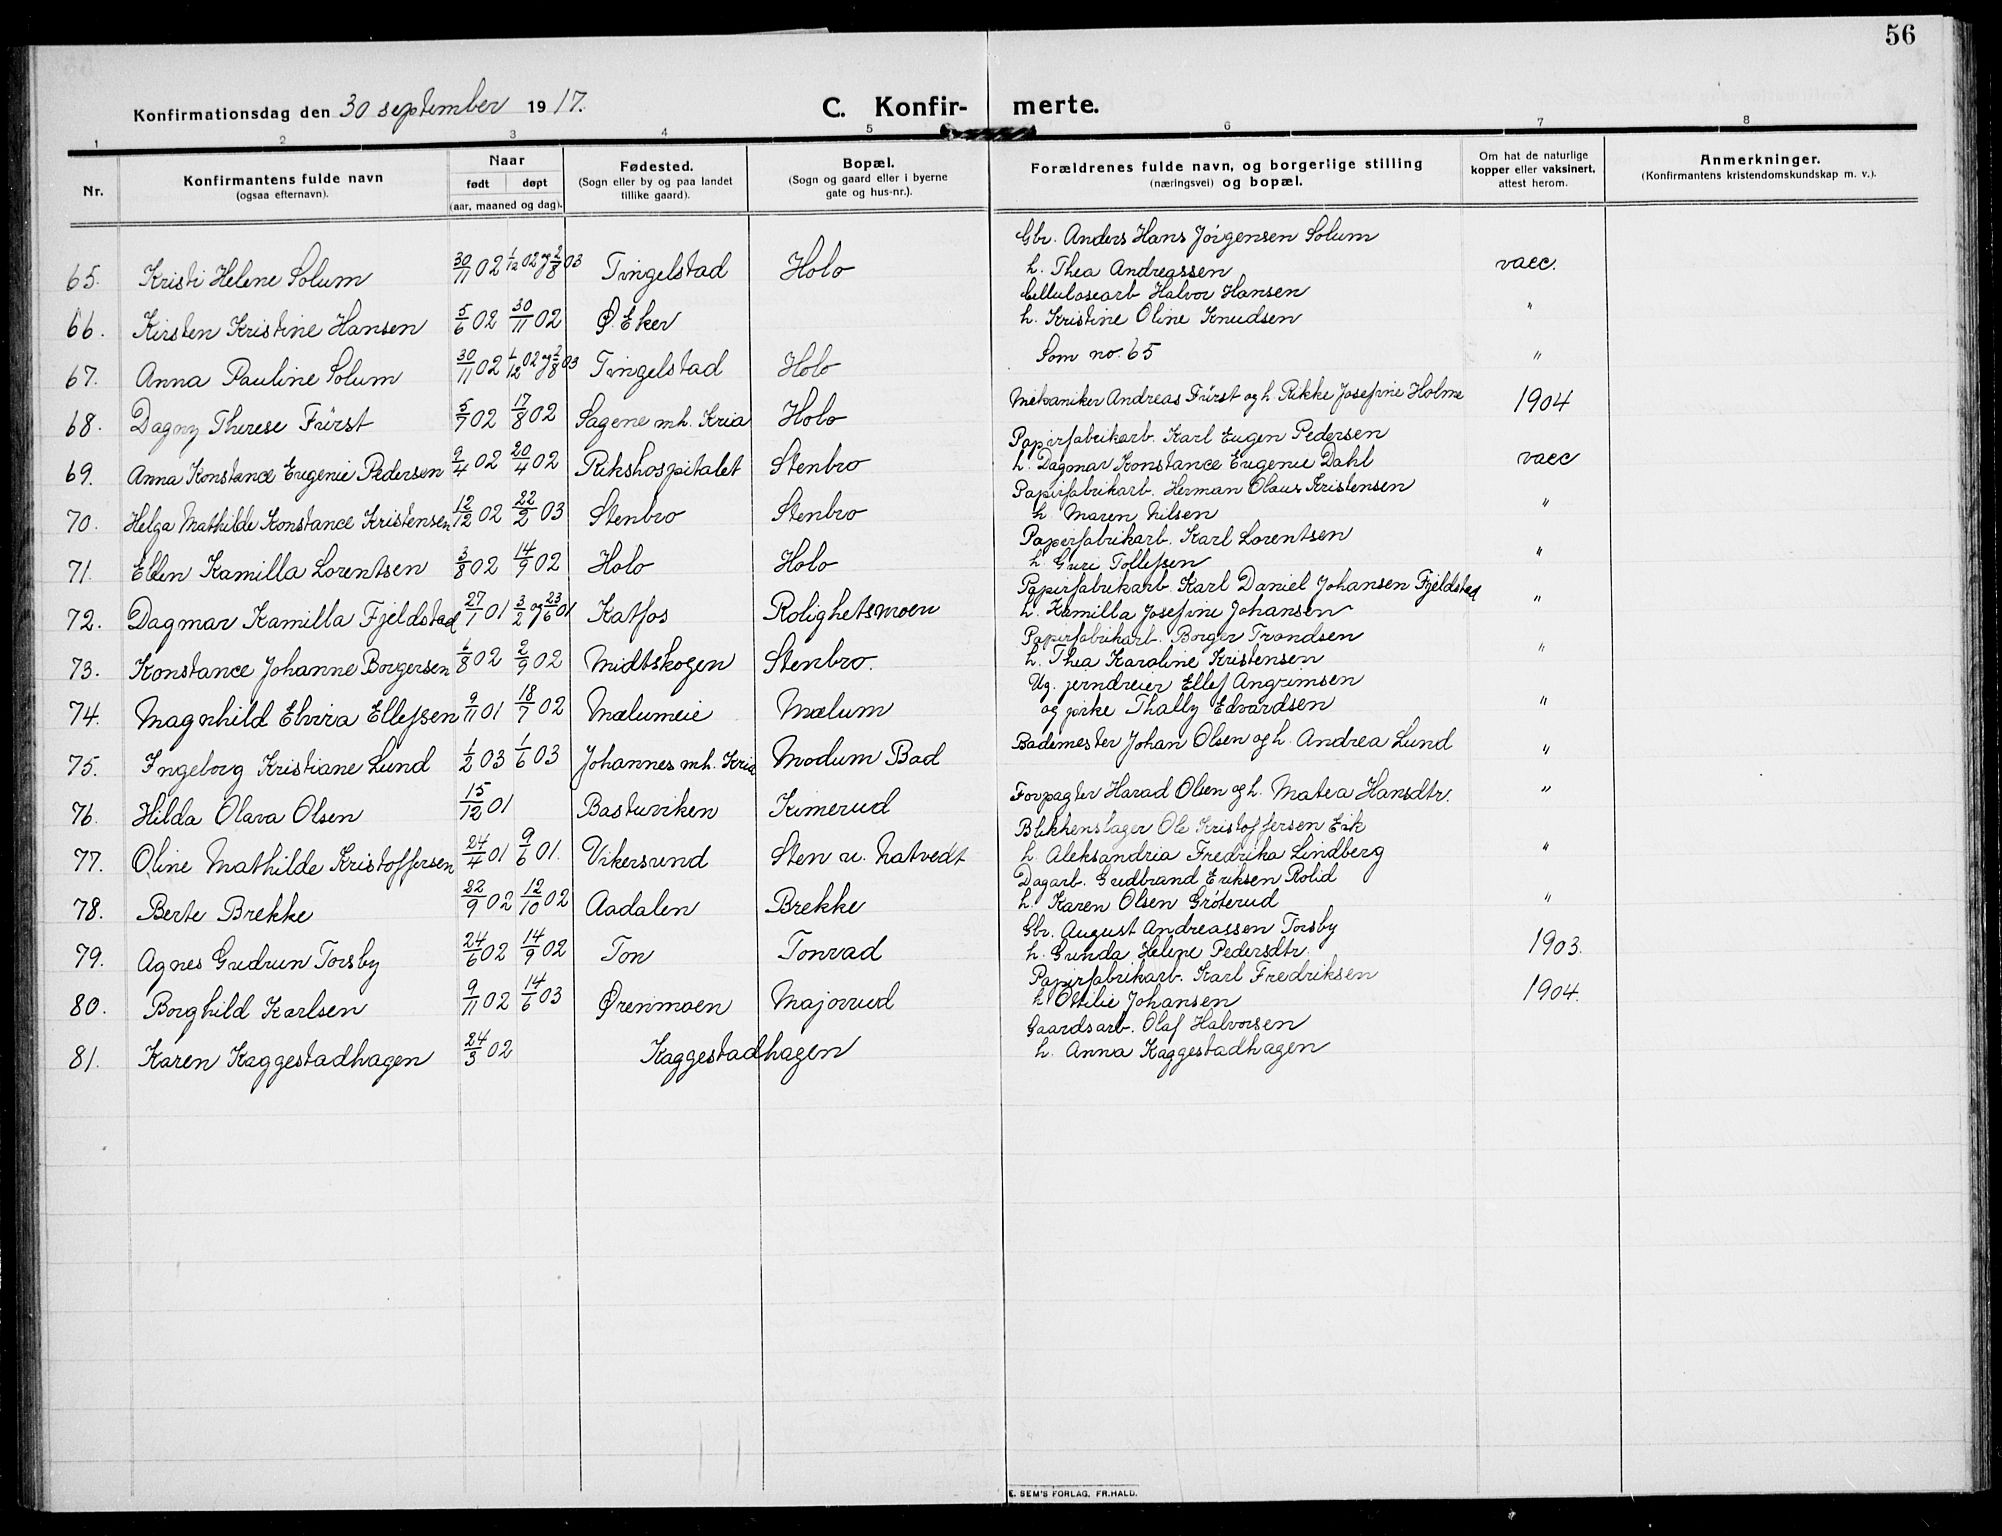 56
Konfirmationsdag den 30 september 1917.
C. Konfir- merte.
1 2 3 4 5 6 7 8
Nr.
Konfirmantens fulde navn
(ogsaa efternavn).
Naar
født døpt
(aar, maaned og dag).
Fødested.
(Sogn eller by og paa landet
tillike gaard).
Bopæl.
(Sogn og gaard eller i byerne
gate og hus-nr.).
Forældrenes fulde navn, og borgerlige stilling
(næringsvei) og bopæl.
Om hat de naturlige
kopper eller vaksinert,
attest herom.
Anmerkninger.
(Konfirmantens kristendomskundskap m. v.).
Gbr. Anders Hans Jørgensen Solum
65. Kristi Helene Solum 30/11 02 1/12 02 og 2/8 03 Tingelstad Holo h. Thea Andreassen vacc.
Cellulosearb Halvor Hansen
66. Kirsten Kristine Hansen 5/6 02 30/11 02 Ø. Eker h. Kristine Oline Knudsen "
67. Anna Pauline Solum 30/11 02 1/12 02 og 2/8 03 Tingelstad Holo Som no. 65 "
68. Dagny Therese Fürst 5/7 02 17/8 02 Sagene mh. Kria Holo Mekaniker Andreas Fürst og h. Rikke Josefine Holme 1904
Papirfabrikarb. Karl Eugen Pedersen
69. Anna Konstance Eugenie Pedersen 9/4 02 20/4 02 Rikshospitalet Stenbro h. Dagmar Konstance Eugenie Dahl vacc
Papirfabrikarb. Herman Olaus Kristensen
70. Helga Mathilde Konstance Kristensen 12/12 02 22/2 03 Stenbro Stenbro h. Maren Nilsen "
Papirfabrikarb. Karl Lorentsen
71. Ellen Kamilla Lorentsen 3/8 02 14/9 02 Holo Holo h. Guri Tollefsen "
Papirfabrikarb. Karl Daniel Johansen Fjeldstad
72. Dagmar Kamilla Fjeldstad 27/1 01 3/2 og 23/6 01 Katfos Rolighetsmoen h. Kamilla Josefine Johansen "
Papirfabrikarb. Borger Trondsen
73. Konstance Johanne Borgersen 6/8 02 2/9 02 Midtskogen Stenbro. h. Thea Karoline Kristensen "
Ug. jerndreier Ellef Angrimsen
74. Magnhild Elvira Ellefsen 9/11 01 18/7 02 Mælumeie Mælum og pike Thally Edvardsen "
75. Ingeborg Kristiane Lund 1/2 03 1/6 03 Johannes mh. Kria Modum Bad Bademester Johan Olsen og h. Andrea Lund "
76. Hilda Olava Olsen 15/12 01 Bastuviken Kimerud Forpagter Harad Olsen og h. Matea Hansdtr. "
Blikkenslager Ole Kristoffersen Eik
77. Oline Mathilde Kristoffersen 24/4 01 9/6 01. Vikersund Sten u. Natvedt h. Aleksandria Fredrika Lindberg "
Dagarb. Gudbrand Eriksen Rolid
78. Berte Brekke 22/9 02 12/10 02 Aadalen Brekke h. Karen Olsen Grøterud "
Gbr. August Andreassen Torsby
79. Agnes Gudrun Torsby 24/6 02 14/9 02 Ton Tonrad h. Gunda Helene Pedersdtr. 1903.
Papirfabrikarb. Karl Fredriksen
80. Borghild Karlsen 9/11 02 14/6 03 Ørenmoen Majorrud h. Ottilie Johansen 1904.
Gaardsarb. Olaf Halvorsen
81. Karen Kaggestadhagen 24/3 02 Kaggestadhagen h. Anna Kaggestadhagen
E. SEM'S FORLAG, FR.HALD.